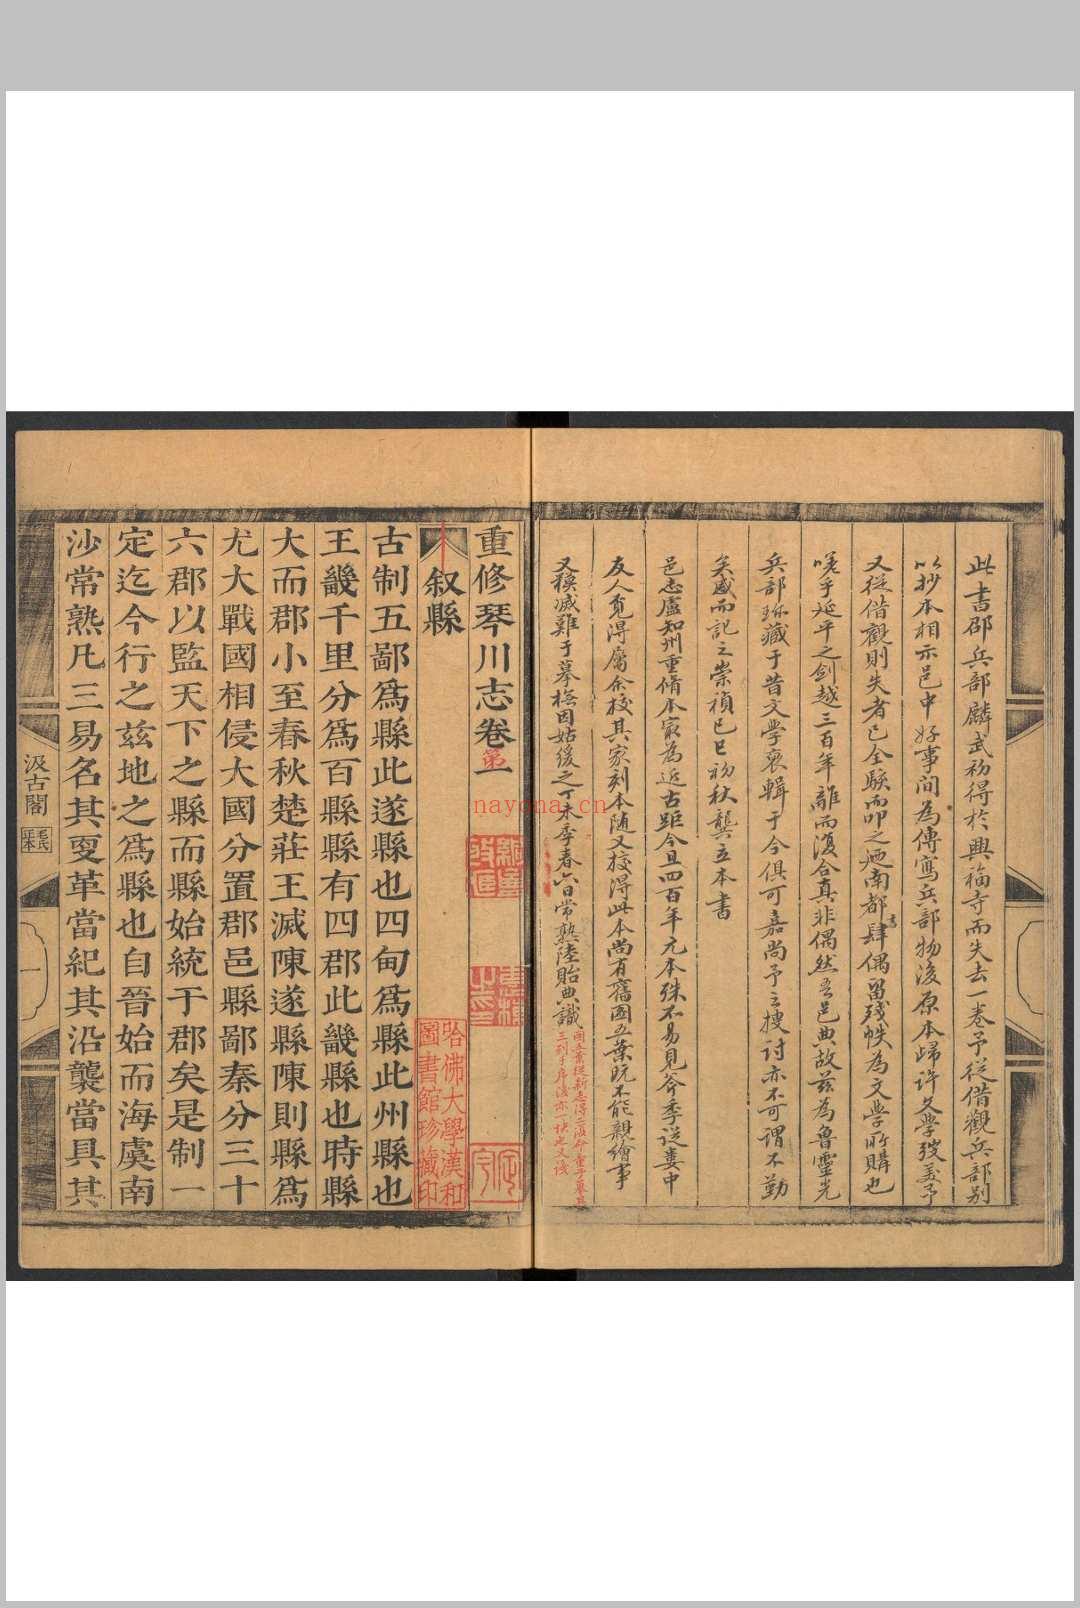 此書邵兵部麟武初得於興福寺而失去一卷予從借觀兵部別
以抄本相示邑中好事間為傳寫兵部物後原本歸許文學
又從借觀則失者已全駭而叩之廼南都書肆偶留殘帙為文學所購也
嗟乎延平之劍越三百年離而復合真非偶然吾邑典故茲為魯靈光
兵部珎藏于昔文學裒輯于今俱可嘉尚予之搜討亦不可謂不勤
矣感而記之崇禎己巳初秋龔立本書
邑志盧知州重脩本最為近古距今且四百年元本殊不易見斧季從婁中
友人覓得屬余校其家刻本随又挍得此本尚有舊圖五葉既不能親繪事
又稬滅難于摹橅因姑後之丁未季春六日常熟陸貽典識
重修琴川志卷第一
叙縣
古制五鄙爲縣此遂縣也四甸爲縣此州縣也
王畿千里分爲百縣縣有四郡此畿縣也時縣
大而郡小至春秋楚莊王滅陳遂縣陳則縣爲
尤大戰國相侵大國分置郡邑縣鄙秦分三十
六郡以監天下之縣而縣始統于郡矣是制一
定迄今行之兹地之爲縣也自晉始而海虞南
沙常熟凡三易名其更革當紀其沿襲當具其
汲古閣
毛氏正本
一
哈佛大學漢和圖書館珍藏印
nayona.cn